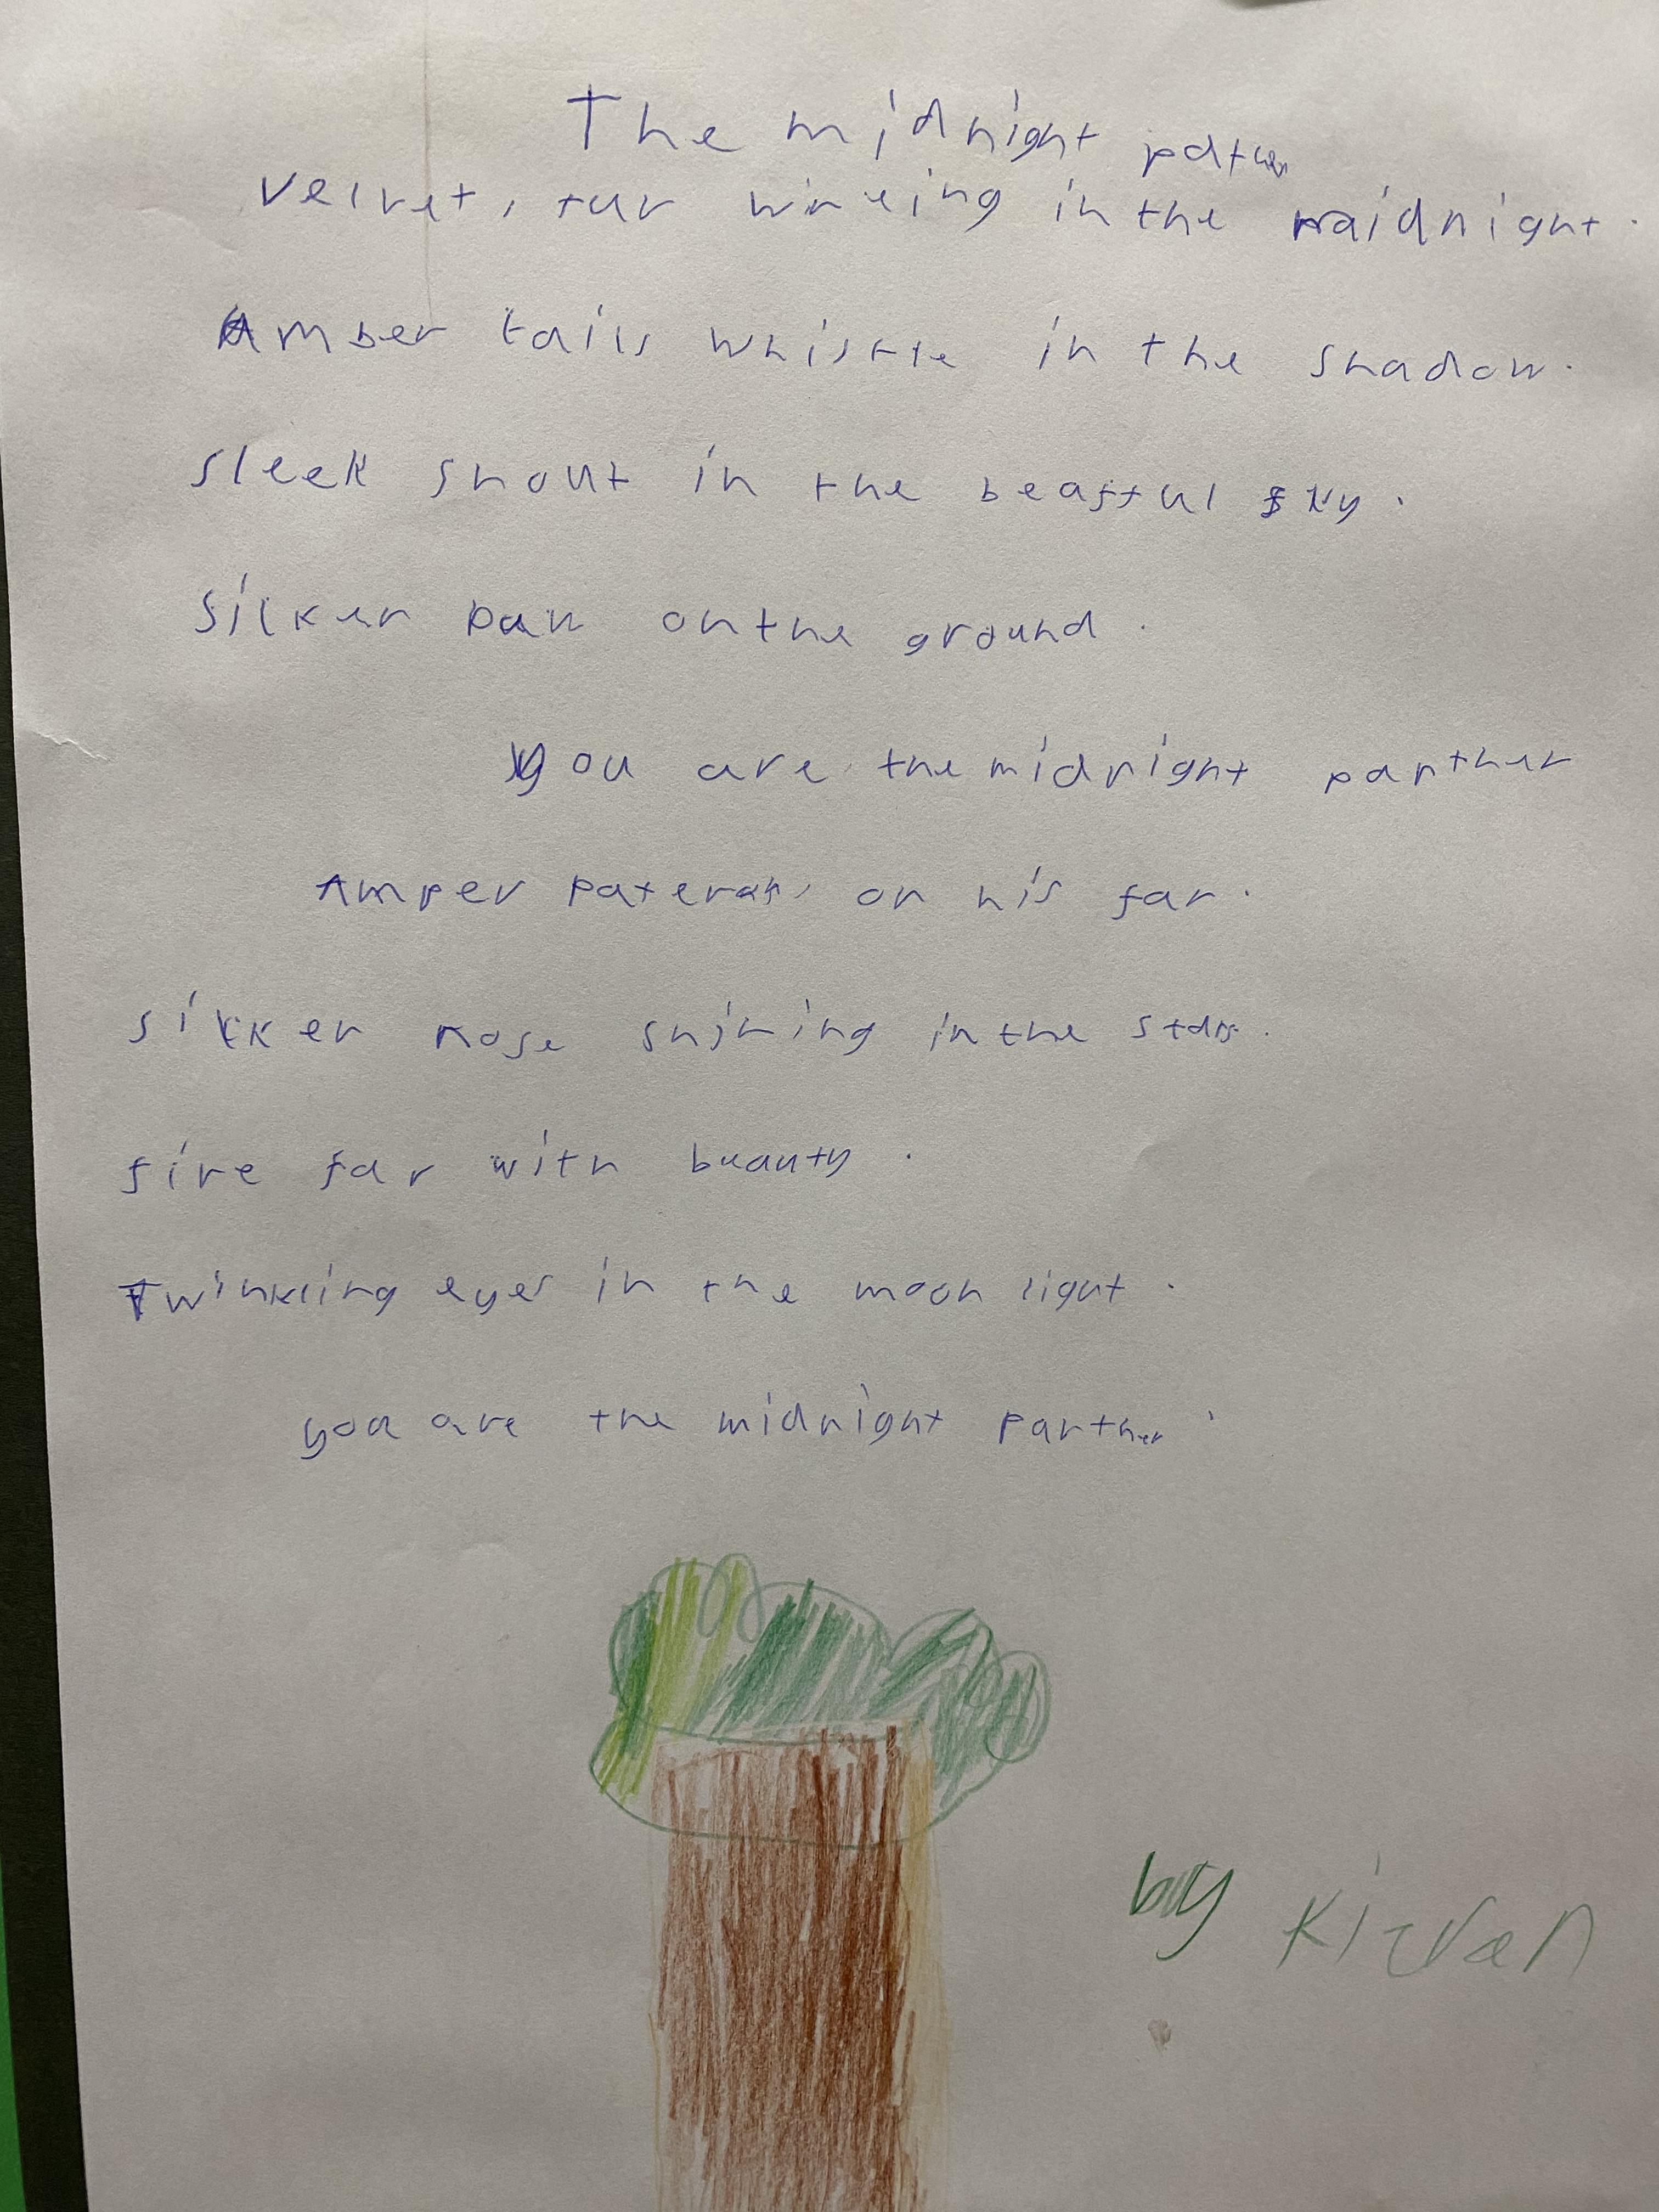 The midnight pather
velvet, fur winking in the midnight.
Amber tails whistle in the shadow.
sleek snout in the beastful sky.
silker paw on the ground.
you are the midnight panther
Amper paterans on his far.
sikker nose shining in the stars.
fire far with beauty.
Twinkling eyes in the moon light.
you are the midnight panther.
by Kieran